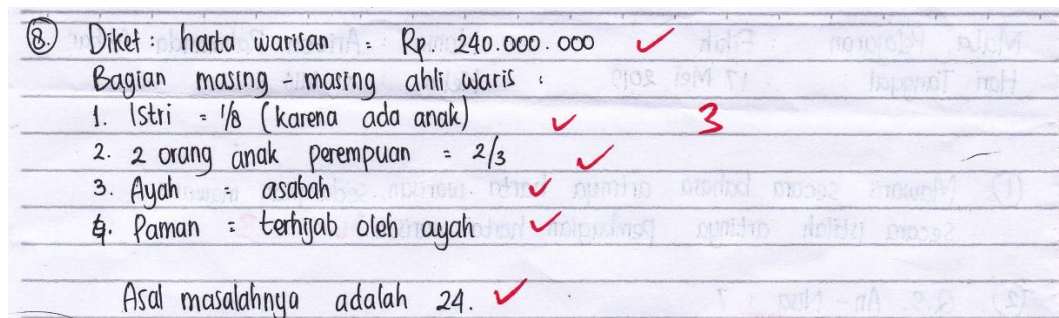 8. Diket : harta warisan = Rp 240.000.000
Bagian masing - masing ahli waris :
1. Istri = 1/8 (karena ada anak)
3
2. 2 orang anak perempuan = 2/3
3. Ayah = asabah
4. Paman = terhijab oleh ayah
Asal masalahnya adalah 24.